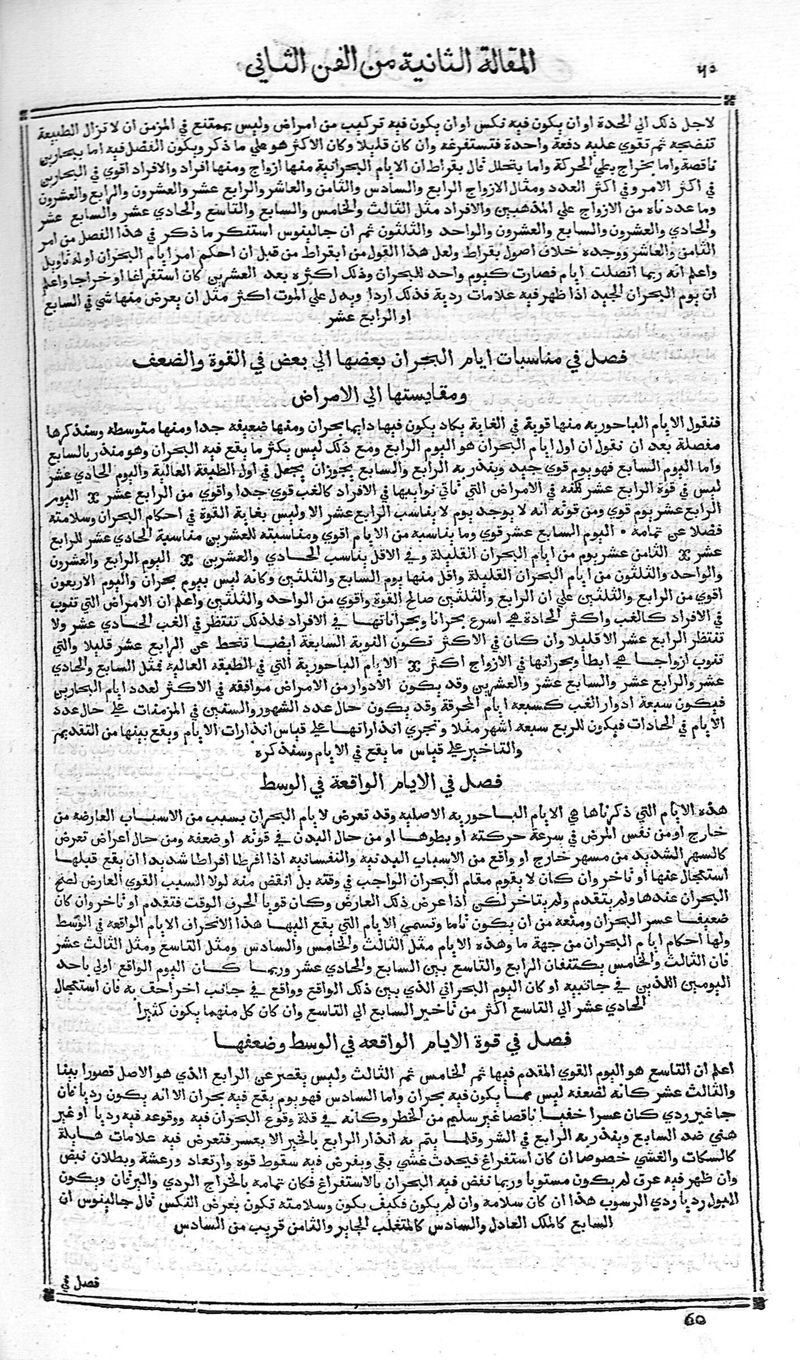 المقالة الثانية من الفن الثاني
لاجل ذلك الي الحدة او ان يكون فيه نكس او ان يكون فيه تركيب من امراض وليس بممتنع في المزمن ان لا تزال الطبيعة
تنضجه ثم تقوي عليه دفعة واحدة فتستفرغه وان كان قليلا وكان الاكثر هو علي ما ذكر ويكون الفضل فيه اما ببحارين
ناقصة واما بخراج بطي الحركة واما بتحلل قال بقراط ان الايام البحرانية منها ازواج ومنها افراد والافراد اقوي في البحارين
في اكثر الامر وفي اكثر العدد ومثال الازواج الرابع والسادس والثامن والعاشر والرابع عشر والعشرون والرابع والعشرون
وما عددناه من الازواج علي المذهبين والافراد مثل الثالث والخامس والسابع والتاسع والحادي عشر والسابع عشر
والحادي والعشرون والسابع والعشرون والواحد والثلثون ثم ان جالينوس استنكر ما ذكر في هذا الفصل من امر
الثامن والعاشر ووجده خلاف اصول بقراط ولعل هذا القول من ابقراط من قبل ان احكم امر ايام البحران او له تاويل
واعلم انه ربما اتصلت ايام فصارت كيوم واحد للبحران وذلك اكثره بعد العشرين كان استفراغا او خراجا واعلم
ان يوم البحران الجيد اذا ظهر فيه علامات ردية فذلك اردا ويدل علي الموت اكثر مثل ان يعرض منها شي في السابع
او الرابع عشر
فصل في مناسبات ايام البحران بعضها الي بعض في القوة والضعف
ومقايستها الي الامراض
فنقول الايام الباحورية منها قوية في الغاية يكاد يكون فيها دايما بحران ومنها ضعيفة جدا ومنها متوسطة وسنذكرها
مفصلة بعد ان نقول ان اول ايام البحران هو اليوم الرابع ومع ذلك ليس يكثر ما يقع فيه البحران وهو منذر بالسابع
واما اليوم السابع فهو يوم قوي جيد وينذر به الرابع والسابع يجوز ان يجعل في اول الطبقة العالية واليوم الحادي عشر
ليس في قوة الرابع عشر لكنه في الامراض التي تاتي نوايبها في الافراد كالغب قوي جدا واقوي من الرابع عشر اليوم
الرابع عشر يوم قوي ومن قوته انه لا يوجد يوم لا يناسب الرابع عشر الا وليس بغاية القوة في احكام البحران وسلامته
فضلا عن تمامه اليوم السابع عشر قوي وما يناسبه من الايام اقوي ومناسبته للعشرين مناسبة الحادي عشر للرابع
عشر الثامن عشر يوم من ايام البحران القليلة وفي الاقل يناسب الحادي والعشرين اليوم الرابع والعشرون
والواحد والثلثون من ايام البحران القليلة واقل منها يوم السابع والثلثين وكانه ليس بيوم بحران واليوم الاربعون
اقوي من الرابع والثلثين علي ان الرابع والثلثين صالح القوة واقوي من الواحد والثلثين واعلم ان الامراض التي تنوب
في الافراد كالغب واكثر الحادة هي اسرع بحرانا وبحراناتها في الافراد فلذلك تنتظر في الغب الحادي عشر ولا
تنتظر الرابع عشر الا قليلا وان كان في الاكثر تكون النوبة السابعة ايضا تنحط عن الرابع عشر قليلا والتي
تنوب ازواجا هي ابطأ وبحرانها في الازواج اكثر الايام الباحورية التي في الطبقة العالية فمثل السابع والحادي
عشر والرابع عشر والسابع عشر والعشرين وقد يكون الادوار من الامراض موافقة في الاكثر لعدد ايام البحارين
فيكون سبعة ادوار الغب كسبعه ايام المحرقة وقد يكون حال عدد الشهور والسنين في المزمنات علي حال عدد
الايام في الحادات فيكون للربع سبعه اشهر مثلا وتجري انذاراتها علي قياس انذارات الايام ويقع بينها من التقديم
والتاخير علي قياس ما يقع في الايام وسنذكره
فصل في الايام الواقعة في الوسط
هذه الايام التي ذكرناها هي الايام الباحوريه الاصليه وقد تعرض لايام البحران بسبب من الاسباب العارضه من
خارج او من نفس المرض في سرعة حركته او بطوها او من حال البدن في قوته او ضعفه ومن حال اعراض تعرض
كالسهر الشديد من مسهر خارج او واقع من الاسباب البدنيه والنفسانيه اذا افرطا افراطا شديدا ان يقع قبلها
استعجال عنها او تاخر وان كان لا يقوم مقام البحران الواجب في وقته بل انقص منه لولا السبب القوي العارض لصح
البحران عندها ولم يتقدم ولم يتاخر لكن اذا عرض ذلك العارض وكان قويا انحرف الوقت فتقدم او تاخر وان كان
ضعيفا عسر البحران ومنعه من ان يكون تاما وتسمي الايام التي يقع اليها هذا الانحراف الايام الواقعه في الوسط
ولها احكام ايام البحران من جهة ما وهذه الايام مثل الثالث والخامس والسادس ومثل التاسع ومثل الثالث عشر
فان الثالث والخامس يكتنفان الرابع والتاسع بين السابع والحادي عشر وربما كان اليوم الواقع اولي باحد
اليومين اللذين في جانبيه او كان اليوم البحراني الذي بين ذلك الواقع وواقع في جانب اخر احق به فان استعجال
الحادي عشر الي التاسع اكثر من تاخير السابع الي التاسع وان كان كل منهما يكون كثيرا
فصل في قوة الايام الواقعه في الوسط وضعفها
اعلم ان التاسع هو اليوم القوي المقدم فيها ثم الخامس ثم الثالث وليس يقصر عن الرابع الذي هو الاصل قصورا بينا
والثالث عشر كانه لضعفه ليس مما يكون فيه بحران واما السادس فهو يوم يقع فيه بحران الا انه يكون رديا فان
جا غير ردي كان عسرا خفيا ناقصا غير سليم من الخطر وكانه في قلة وقوع البحران فيه ووقوعه فيه رديا او غير
هني ضد السابع وينذر به الرابع في الشر وقلما يتم به انذار الرابع بالخير الا بعسر فتعرض فيه علامات هايلة
كالسكات والغشي خصوصا ان كان استفراغ فيحدث غشي بقي ويعرض فيه سقوط قوة وارتعاد ورعشة وبطلان نبض
وان ظهر فيه عرق لم يكون مستويا وربما نفض فيه البحران بالاستفراغ فكان تمامه بالخراج الردي واليرقان ويكون
البول رديا ردي الرسوب هذا ان كان سلامة وان لم يكون فكيف يكون وسلامته تكون بعرض النكس قال جالينوس ان
السابع كالملك العادل والسادس كالمتغلب الجاير والثامن قريب من السادس
فصل في
60